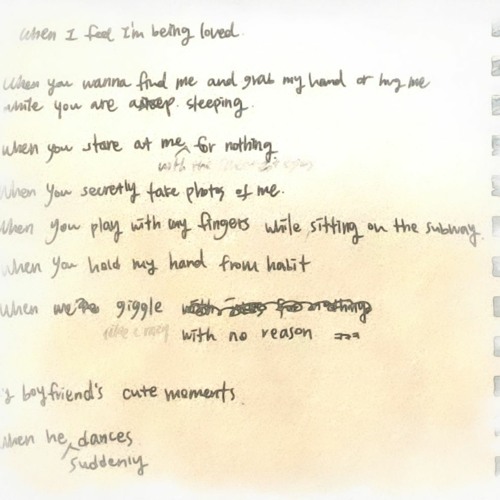 When I feel I'm being loved.
When you wanna find me and grab my hand or hug me
while you are asleep. sleeping.
when you stare at me for nothing
with the
When you secretly take photos of me.
When you play with my fingers while sitting on the subway.
When you hold my hand from habit
When we giggle
with no reason
boyfriend's cute moments
when he dances
suddenly